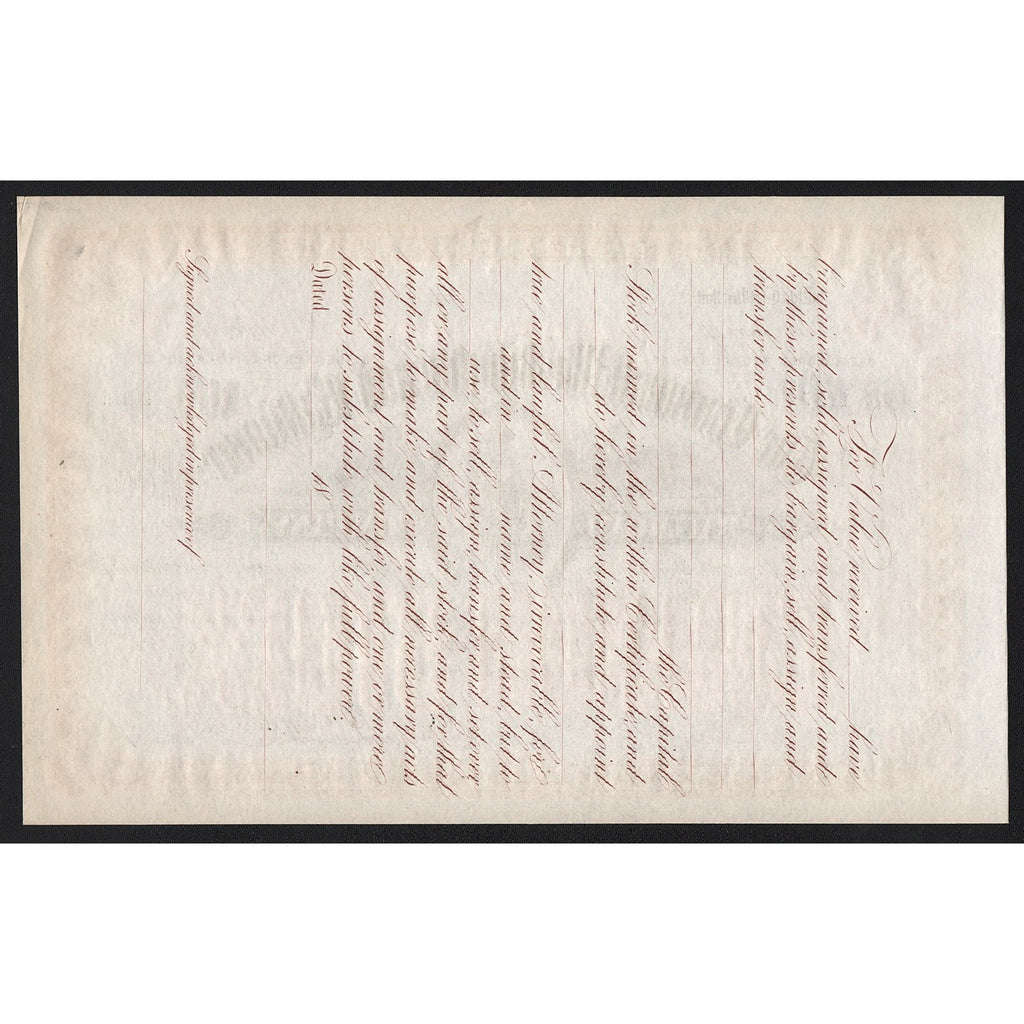 For Value received ______ have
bargained, sold, assigned and transferred, and
by these presents do bargain, sell, assign and
transfer unto
the Capital
Stock named in the within Certificate and
do hereby constitute and appoint
true and lawful Attorney irrevocable, for
and in name and stead, but to
use, to sell, assign, transfer and set over
all or any part of the said stock, and for that
purpose to make and execute all necessary acts
of assignment and transfer, and one or more
persons to substitute with like full power.
Dated 18
Signed and acknowledged in presence of